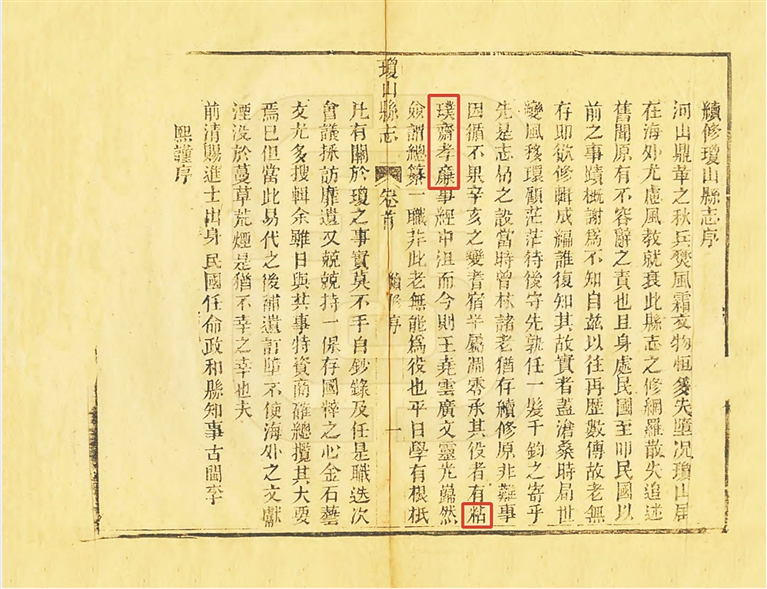 續修瓊山縣志序
河山鼎革之秋兵燹風霜文物恒憂失墜况瓊山居
在海外尤慮風教就衰此縣志之修網羅散失追述
舊聞原有不容辭之責也且身處民國至叩民國以
前之事蹟概謝爲不知自茲以往再歷數傳故老無
存即欲修輯成編誰復知其故實者蓋滄桑時局世
變風移環顧茫茫待後守先孰任一髮千鈞之寄乎
先是志局之設當時曾林諸老猶存續修原非難事
因循不果辛亥之變耆宿半屬凋零承其役者有粘
璞齋孝廉事經中沮而今則王堯雲廣文靈光巋然
僉謂總纂一職非此老無能爲役也平日學有根柢
瓊山縣志 卷首 續修序 一
凡有關於瓊之事實莫不手自鈔錄及任是職迭次
會議採訪靡遺又兢兢持一保存國粹之心金石藝
文尤多搜輯余雖日與其事特資商確總攬其大要
焉已但當此易代之後補遺訂墜不使海外之文獻
湮没於蔓草荒煙是猶不幸之幸也夫
前清賜進士出身民國任命政和縣知事古閩李
熙謹序